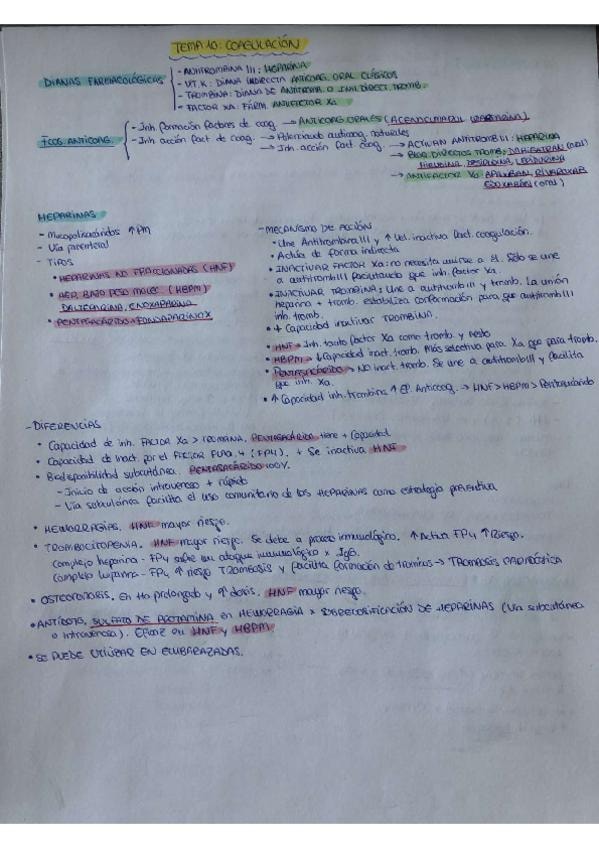 TEMA 10: COAGULACIÓN
DIANAS FARMACOLÓGICAS
- ANTITROMBINA III: HEPARINA
- VIT. K: DIANA INDIRECTA ANTICOAG. ORAL CLÁSICOS
- TROMBINA: DIANA DE ANTITROMB. O INH. DIRECT. TROMB.
- FACTOR XA: FÁRM. ANTIFACTOR Xa
FCOS ANTICOAG.
- Inh. formación factores de coag. → ANTICOAG ORALES (ACENOCUMAROL, WARFARINA)
- Inh. acción fact. de coag. → Potenciando anticoag. naturales
→ Inh. acción fact. coag.
→ ACTIVAN ANTITROMB III: HEPARINA
→ BLOQ. DIRECTOS TROMB: DABIGATRAN (oral)
HIRUDINA, DESIRUDINA, LEPIRUDINA
→ ANTIFACTOR Xa: APIXABAN, RIVAROXAB
EDOXABÁN (oral)
HEPARINAS
- Mucopolisacáridos ↑PM
- Vía parenteral
- TIPOS
• HEPARINAS NO FRACCIONADAS (HNF)
• HEP. BAJO PESO MOLEC. (HBPM)
DALTEPARINA, ENOXAPARINA
• PENTASACÁRIDO: FONDAPARINUX
- MECANISMO DE ACCIÓN
• Une Antitrombina III y ↑ Vel. inactiva fact. coagulación.
• Actúa de forma indirecta
• INACTIVAR FACTOR Xa: no necesita unirse a él. Sólo se une
a antitromb III facilitando que inh. factor Xa.
• INACTIVAR TROMBINA: Une a antitromb III y tromb. La unión
heparina + tromb. estabiliza conformación para que antitromb III
inh. tromb.
• Capacidad inactivar TROMBINA.
• HNF → Inh. tanto factor Xa como tromb. y resto
• HBPM → ↓ Capacidad inact. tromb. Más selectiva para Xa que para tromb.
• PENTASACÁRIDO → NO inact. tromb. Se une a antitromb III y facilita
que inh. Xa.
• ↑ Capacidad inh. trombina ↑ Ef. Anticoag. → HNF > HBPM > Pentasacárido
- DIFERENCIAS
• Capacidad de inh. FACTOR Xa > TROMBINA. PENTASACÁRIDO tiene + Capacidad
• Capacidad de inact. por el FACTOR PLAQ. 4 (FP4). + Se inactiva HNF
• Biodisponibilidad subcutánea. PENTASACÁRIDO 100%.
- Inicio de acción intravenoso + rápido
- Vía subcutánea facilita el uso comunitario de las HEPARINAS como estrategia preventiva
• HEMORRAGIAS. HNF mayor riesgo.
• TROMBOCITOPENIA. HNF mayor riesgo. Se debe a proceso inmunológico. ↑ Activa FP4 ↑ Riesgo.
Complejo heparina - FP4 sufre un ataque inmunológico x IgG.
Complejo heparina - FP4 ↑ riesgo TROMBOSIS y facilita formación de trombina → TROMBOSIS PARADÓJICA
• OSTEOPOROSIS. En tto prolongado y ↑ dosis. HNF mayor riesgo.
• ANTÍDOTO, SULFATO DE PROTAMINA en HEMORRAGIA x SOBREDOSIFICACIÓN DE HEPARINAS (Vía subcutánea
o intravenosa). Eficaz en HNF y HBPM.
• SE PUEDE UTILIZAR EN EMBARAZADAS.